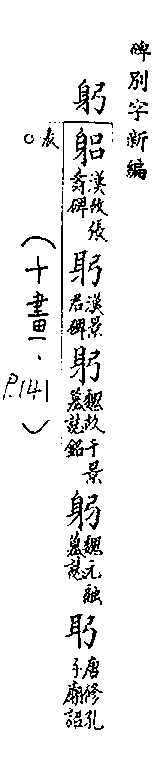 碑別字新編
躬
躳漢故張壽碑躬漢景君碑躬魏故于景墓誌銘躬魏元融墓誌躬唐修孔子廟詔
○表
(十畫、P.141)